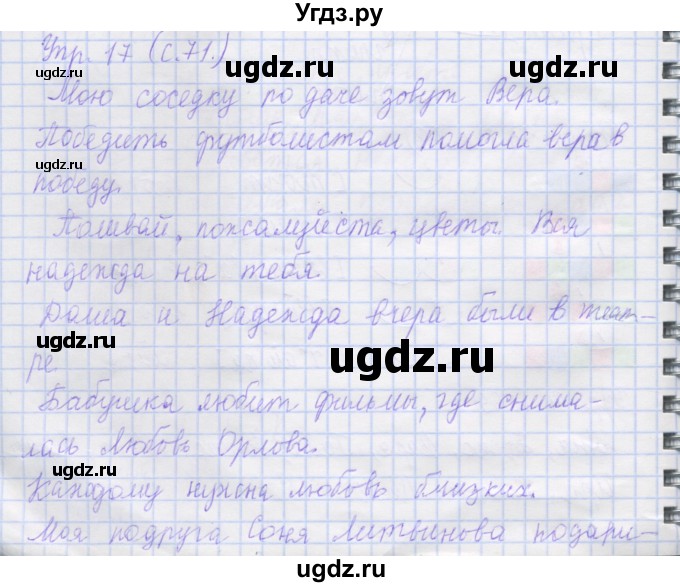 Угдз.ру
Упр. 17 (с.71.)
Мою соседку по даче зовут Вера.
Победить футболистам помогла вера в
победу.
Поливай, пожалуйста, цветы. Вся
надежда на тебя.
Даша и Надежда вчера были в теат-
ре.
Бабушка любит фильмы, где снима-
лась Любовь Орлова.
Каждому нужна любовь близких.
Моя подруга Соня Литвинова подари-
ugdz.ru
ugdz.ru
ugdz.ru
ugdz.ru
ugdz.ru
ugdz.ru
ugdz.ru
ugdz.ru
ugdz.ru
ugdz.ru